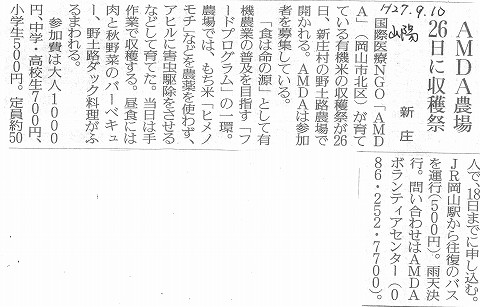 H27.9.10
山陽
AMDA農場
26日に収穫祭
新庄
国際医療NGO「AMD
A」(岡山市北区)が育て
ている有機米の収穫祭が26
日、新庄村の野土路農場で
開かれる。AMDAは参加
者を募集している。
「食は命の源」として有
機農業の普及を目指す「フ
ードプログラム」の一環。
農場では、もち米「ヒメノ
モチ」などを農薬を使わず、
アヒルに害虫駆除をさせる
などして育てた。当日は手
作業で収穫する。昼食には
肉と秋野菜のバーベキュ
ー、野土路ダック料理がふ
るまわれる。
参加費は大人1000
円、中学・高校生700円、
小学生500円。定員約50
人で、18日までに申し込む。
JR岡山駅から往復のバス
を運行(500円)。雨天決
行。問い合わせはAMDA
ボランティアセンター(0
86・252・7700)。